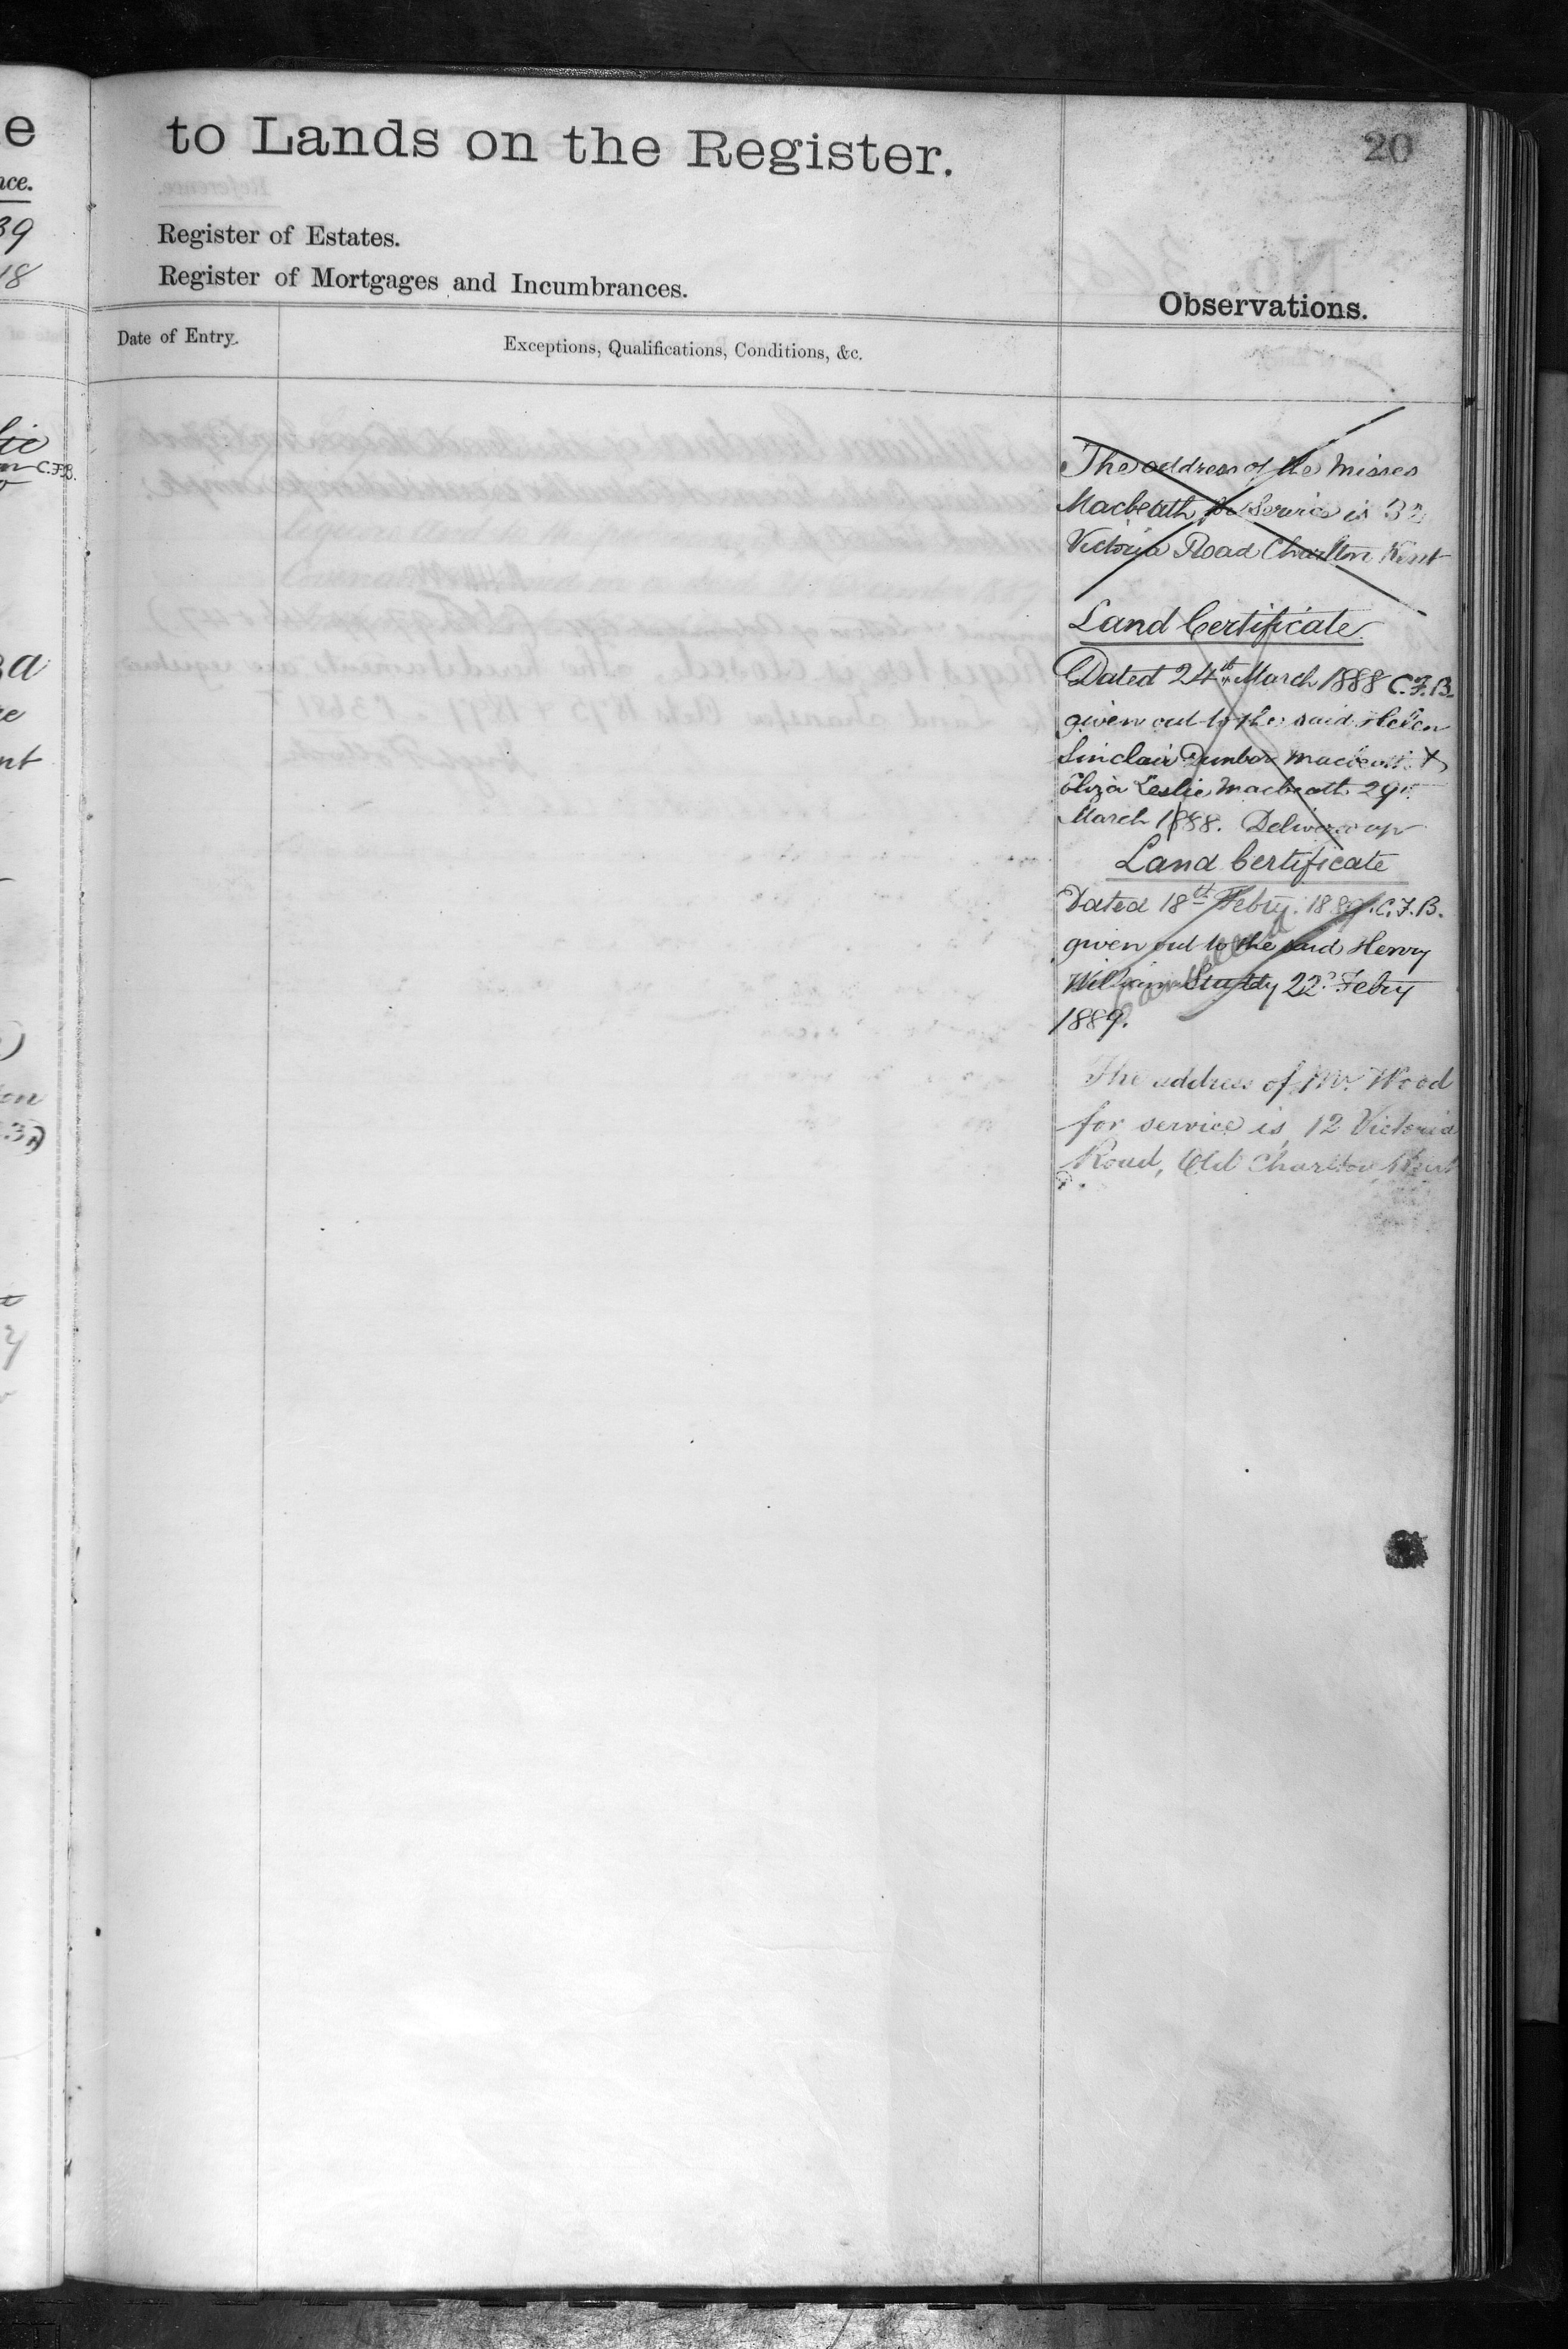 to Lands on the Register.
20
Register of Estates.
Register of Mortgages and Incumbrances.
Observations.
Date of Entry.
Exceptions, Qualifications, Conditions, &c.
The address of the Misses
Macbeath for Service is 32
Victoria Road Charlton Kent
Land Certificate
Dated 24th March 1888 C.F.B.
given out to the said Helen
Sinclair Dunbar Macbeath &
Eliza Leslie Macbeath 29th
March 1888. Delivered up
Land Certificate
Dated 18th Febry. 1889. C.F.B.
given out to the said Henry
William Studdy 22d Febry
1889.
Cancelled
The address of Mr. Wood
for service is, 12 Victoria
Road, Old Charlton, Kent